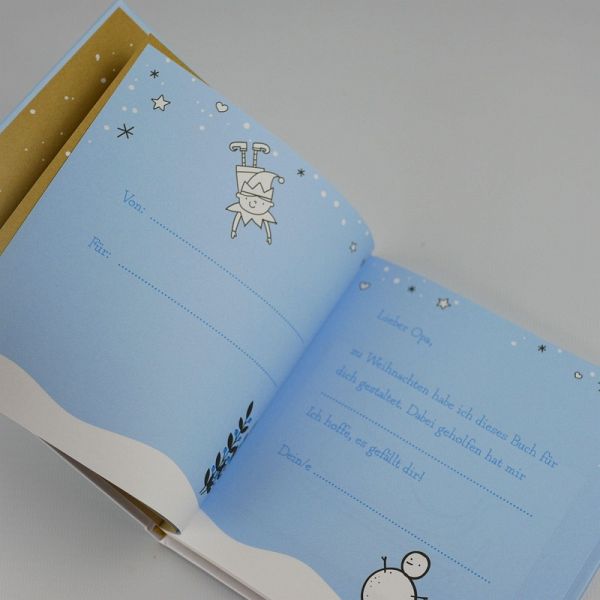 Von:
Für:
Lieber Opa,
zu Weihnachten habe ich dieses Buch für
dich gestaltet. Dabei geholfen hat mir
Ich hoffe, es gefällt dir!
Dein/e